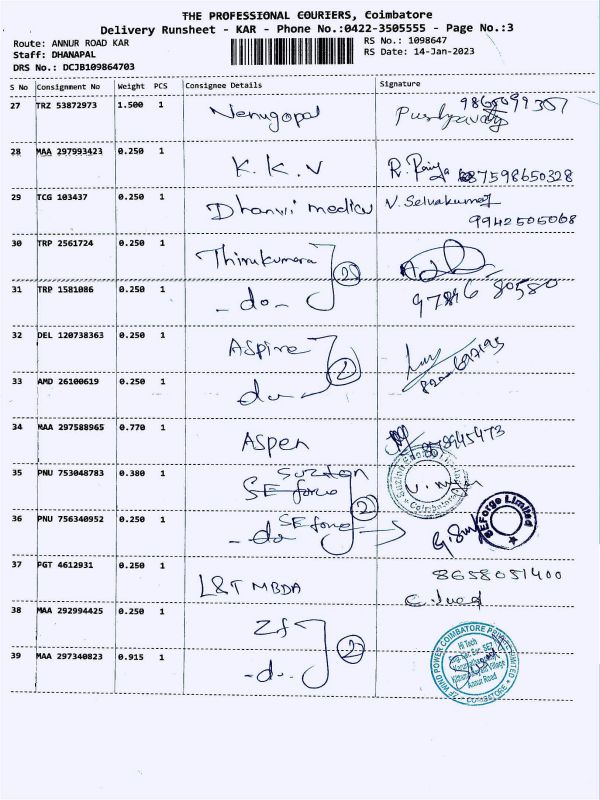 THE PROFESSIONAL COURIERS, Coimbatore
Delivery Runsheet - KAR - Phone No.:0422-3505555 - Page No.:3
Route: ANNUR ROAD KAR
RS No.: 1098647
Staff: DHANAPAL
RS Date: 14-Jan-2023
DRS No.: DCJB109864703
S No Consignment No Weight PCS Consignee Details Signature
27 TRZ 53872973 1.500 1 Nenugopal
28 MAA 297993423 0.250 1 K.K.V R. 7598650328
29 TCG 103437 0.250 1 Dhanvi medical V. Selvakumar
9942505068
30 TRP 2561724 0.250 1 Thirukumara
31 TRP 1581086 0.250 1 -do- 80580
32 DEL 120738363 0.250 1 Aspire 2
33 AMD 26100619 0.250 1 do
34 MAA 297588965 0.770 1 Aspen
35 PNU 753048783 0.380 1 Suzlon
SE forge 2
36 PNU 756340952 0.250 1 -do- SE forge
SEForge Limited
37 PGT 4612931 0.250 1 L&T MBDA 8658051400
38 MAA 292994425 0.250 1 Zf 2
39 MAA 297340823 0.915 1 -do-
ZF WIND POWER COIMBATORE PRIVATE LIMITED
Hi Tech
Annur Road
COIMBATORE